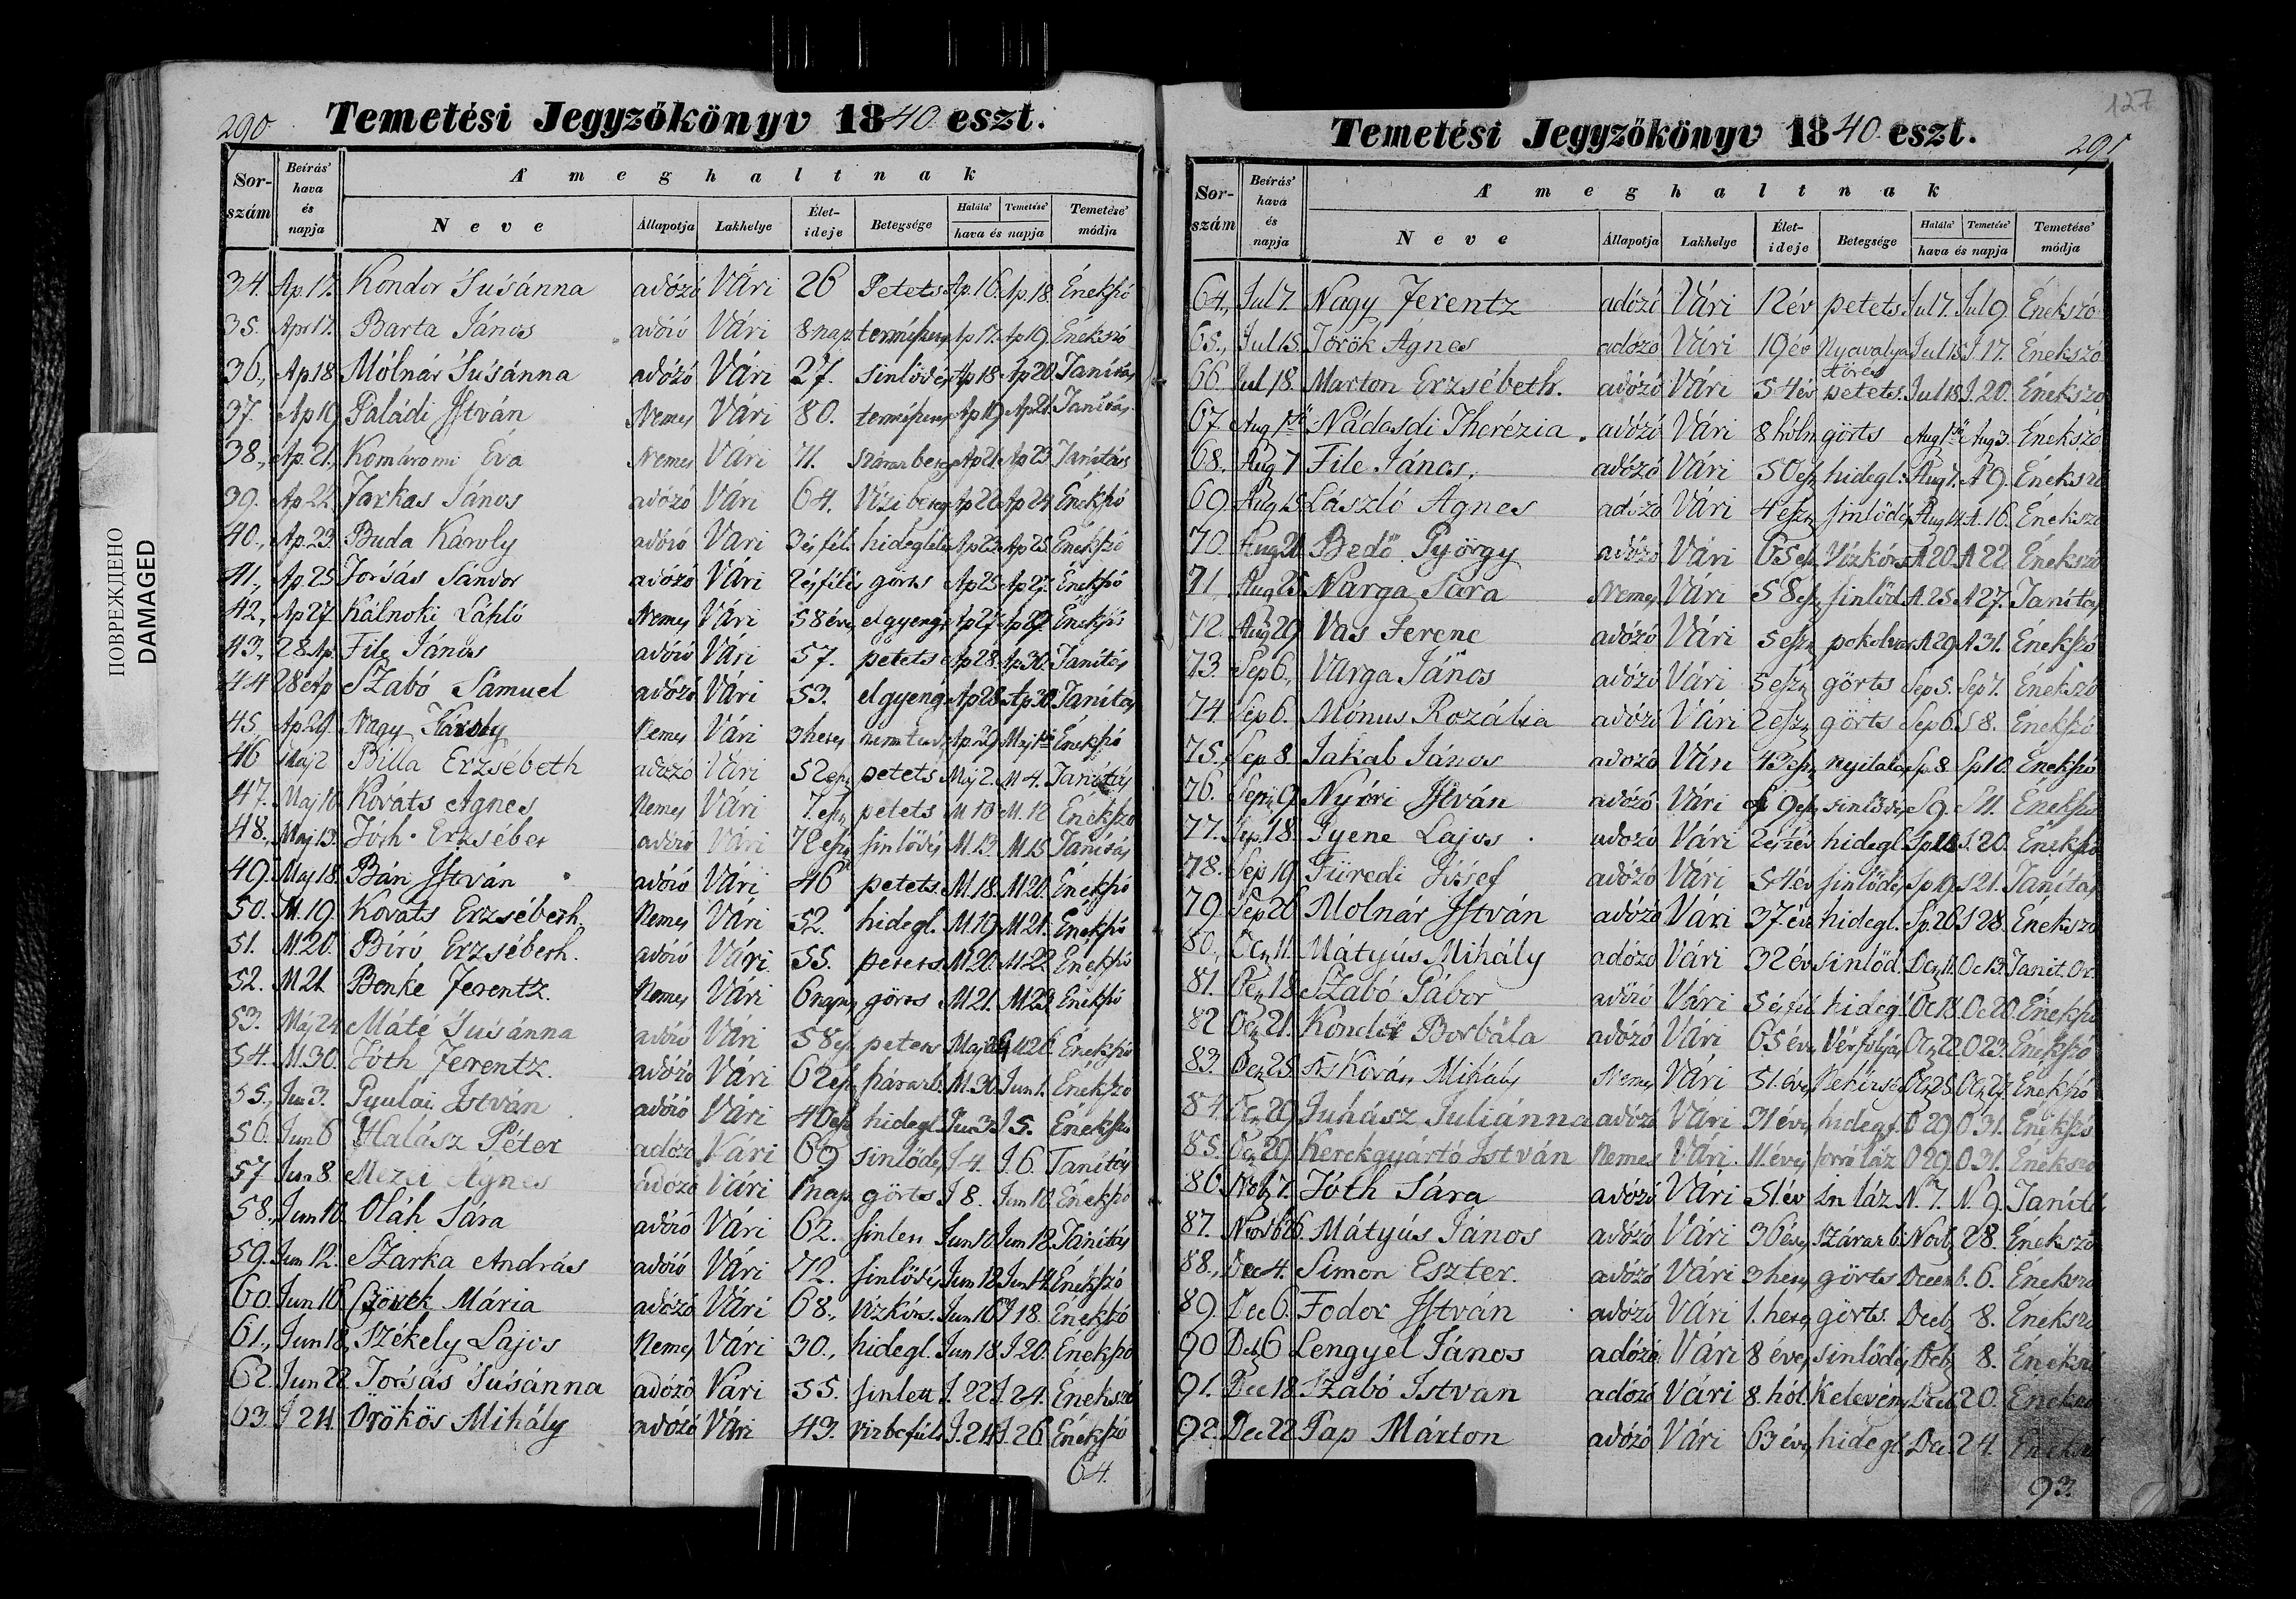 290.
Temetési Jegyzőkönyv 1840 eszt.
Sor-szám Beírás' hava és napja A' meghaltnak
Neve Állapotja Lakhelye Élet-ideje Betegsége Halála' Temetése' hava és napja Temetése' módja
34. Ap. 17. Kondor Susánna adózó Vári 26 Petets Ap. 16. Ap. 18. Énekszó
35. Apr 17. Barta János adózó Vári 8 nap. Ap 17. Ap 19. Énekszó
36., Ap 18 Mólnár Susánna adózó Vári 27. sinlődés Ap 18 Ap 20 Tanítás
37. Ap 19 Paládi István Nemes Vári 80. Ap 19 Ap 21. Tanítás
38., Ap. 21. Komáromi Éva Nemes Vári 71. Száraz beteg Ap 21. Ap 23 Tanítás
39. Ap 22. Farkas János adózó Vári 64. Vízi beteg Ap 22 Ap 24 Énekszó
40., Ap. 23. Buda Károly adózó Vári 3 és fél hideglelés Ap 23 Ap 25. Énekszó
41., Ap 25 Forsás Sándor adózó Vári 2 és fél görts Ap 25 Ap 27. Énekszó
42., Ap 27. Kálnoki Láhló Nemes Vári 58 éve elgyeng. Ap 27. Ap 29. Énekszó
43., 28 Ap. File János adózó Vári 57. petets Ap 28. Ap 30. Tanítás
44 28 Ap Szabó Sámuel adózó Vári 53. elgyeng. Ap 28. Ap 30 Tanítás
45, Ap 29. Nagy Károly Nemes Vári 3 hetes Ap 29 Énekszó
46 Maj 2 Billa Erzsébeth adózó Vári 52 esz petets Maj 2. M 4. Tanítás
47. Maj 10. Kováts Ágnes Nemes Vári 7. esz petets M 10 M. 12 Énekszó
48., Maj 13. Tóth Erzsébet adózó Vári 72 esz sinlődés M 13. M 15 Tanítás
49. Maj 18. Bán István adózó Vári 46 petets. M. 18. M 20. Énekszó
50. M. 19. Kováts Erzsébeth. Nemes Vári 52. hidegl. M. 19. M 21. Énekszó
51. M. 20. Biró Erzsébeth. adózó Vári 55. petets M 20. M 22. Énekszó
52. M 21 Benke Ferentz. Nemes Vári 6 napos görts M 21. M 23. Énekszó
53. Máj 24 Máté Susánna adózó Vári 58 esz petets M 26. Énekszó
54. M. 30. Tóth Ferentz. adózó Vári 62 esz szárazb. M. 30. Jun 1. Énekszó
55., Jun 3. Gyulai István adózó Vári 40 esz hidegl. Jun 3. J 5. Énekszó
56. Jun 6 Halász Péter adózó Vári 69 sinlődés J 4. J. 6. Tanítás
57 Jun 8. Mezei Ágnes adózó Vári 1 nap. görts J 8. Jun 10. Énekszó
58., Jun 10. Oláh Sára adózó Vári 62. sinlett Jun 10. Jun 12. Tanítás
59. Jun 12. Szarka András adózó Vári 72. sinlődés Jun 12 Jun 14. Énekszó
60. Jun 16. Mária adózó Vári 68., vízkórs. Jun 16 J 18. Énekszó
61., Jun 18, Székely Lajos Nemes Vári 30., hidegl. Jun 18. J 20. Énekszó
62. Jun 22. Forsás Susánna adózó Vári 55. sinlett J. 22 J. 24. Énekszó
63. J 24. Örökös Mihály adózó Vári 43. vizbefult J. 24 J. 26. Énekszó
64.
127
291
Temetési Jegyzőkönyv 1840. eszt.
Sor-szám Beírás' hava és napja A' meghaltnak
Neve Állapotja Lakhelye Élet-ideje Betegsége Halála' Temetése' hava és napja Temetése' módja
64., Jul 7. Nagy Ferentz adózó Vári 12 év petets. Jul 7. Jul 9. Énekszó
65., Jul 15. Török Ágnes adózó Vári 19 év Nyavalya törés Jul 15. J. 17. Énekszó
66. Jul 18. Marton Erzsébeth. adózó Vári 54 év petets. Jul 18. J. 20. Énekszó
67. Aug 1ső Nádasdi Therézia. adózó Vári 8 hóln görts Aug 1ső Aug 3. Énekszó
68. Aug 7 File János, adózó Vári 50 esz hidegl. Aug 7. A 9. Énekszó
69. Aug 15 László Ágnes adózó Vári 4 esz sinlődés Aug 14. A. 16. Énekszó
70. Aug 21 Bedő György adózó Vári 65 esz Vízkórs A 20. A 22. Énekszó
71, Aug 25 Varga Sára Nemes Vári 58 esz sinlőd. A. 25. A 27. Tanítás
72. Aug 29. Vas Ferenc adózó Vári 5 esz pokolvar A 29. A 31. Énekszó
73. Sep 6., Varga János adózó Vári 5 esz görts Sep 5. Sep 7. Énekszó
74. Sep 6. Mónus Rozália adózó Vári 2 esz görts Sep 6. S 8. Énekszó
75. Sep 8. Jakab János adózó Vári 43 esz nyilalás Sp. 8. Sp 10. Énekszó
76. Sep 9. Nyiri István adózó Vári 9 esz sinlődés S 9. S 11. Énekszó
77. Sep. 18. Gyene Lajos adózó Vári hidegl. Sp 18 S. 20. Énekszó
78. Sep 19. Füredi Jósef adózó Vári 54 év sinlődés Sp 19. S 21. Tanítás
79. Sep 26. Molnár István adózó Vári 37 éve hidegl. Sp. 26 S 28. Énekszó
80., Oct 11. Mátyús Mihály adózó Vári 32 év sinlőd. Oct 11. Oc 13. Tanít. Or.
81. Oct 18. Szabó Gábor adózó Vári 5 és fél hidegl. Oc 18. Oc 20. Énekszó
82 Oct 21. Kondor Borbála adózó Vári 65 éve Vérfolyás Oct 22. O 23. Énekszó
83. Oct 25. Mihály Nemes Vári 51. éve Oct 25. Oct 27. Énekszó
84. Oct 29. Juhász Juliánna adózó Vári 31 éve hidegl. O 29. O 31. Énekszó
85. Oct 29. Kerekgyártó István Nemes Vári 11. éves forró láz O 29. O 31. Énekszó
86. Nob 7. Tóth Sára adózó Vári 51 év in láz N. 7. N. 9. Tanítás
87. Nov 26. Mátyús János adózó Vári 36 éves Száraz b. Novb 28. Énekszó
88., Dec 4. Simon Eszter. adózó Vári 3 hetes görts Decemb. 6. Énekszó
89. Dec 6. Fodor István adózó Vári 1. hetes görts. Decb 8. Énekszó
90 Deb 6 Lengyel János adózó Vári 8 éves sinlődés Decb 8. Énekszó
91. Dec 18. Szabó István adózó Vári 8. hól Kelevény Decb 20. Énekszó
92. Dec 22 Pap Márton adózó Vári 63 éve hidegl. Dec. 24. Énekszó
93.
ПОВРЕЖДЕНО
DAMAGED